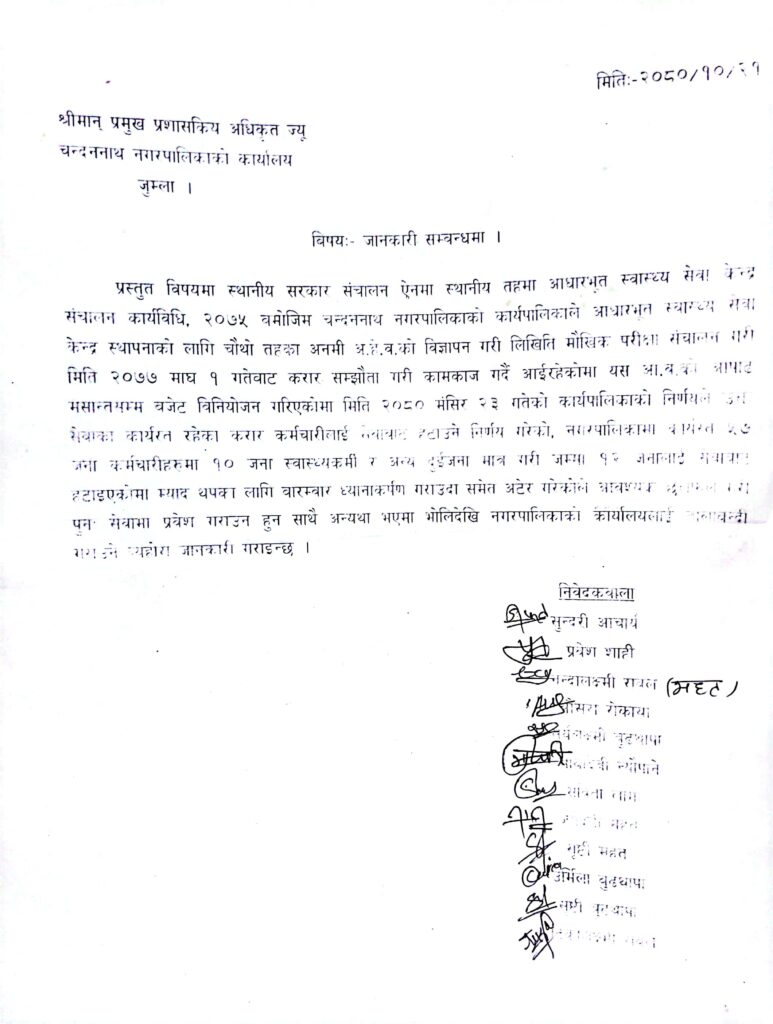 मितिः-२०८०/१०/२१
श्रीमान् प्रमुख प्रशासकिय अधिकृत ज्यू
चन्दननाथ नगरपालिकाको कार्यालय
जुम्ला ।
विषयः- जानकारी सम्बन्धमा ।
प्रस्तुत विषयमा स्थानीय सरकार संचालन ऐनमा स्थानीय तहमा आधारभूत स्वास्थ्य सेवा केन्द्र
संचालन कार्यविधि, २०७५ बमोजिम चन्दननाथ नगरपालिकाको कार्यपालिकाले आधारभूत स्वास्थ्य सेवा
केन्द्र स्थापनाको लागि चौथो तहका अनमी अ.हे.व.को विज्ञापन गरी लिखिति मौखिक परीक्षा संचालन गरी
मिति २०७७ माघ १ गतेबाट करार सम्झौता गरी कामकाज गर्दै आईरहेकोमा यस आ.व.को आषाढ
मसान्तसम्म बजेट विनियोजन गरिएकोमा मिति २०८० मंसिर २३ गतेको कार्यपालिकाको निर्णयले
सेवाका कार्यरत रहेका करार कर्मचारीलाई सेवाबाट हटाउने निर्णय गरेको, नगरपालिकामा कार्यरत ५७
जना कर्मचारीहरुमा १० जना स्वास्थ्यकर्मी र अन्य दुईजना मात्र गरी जम्मा १२ जनालाई सेवाबाट
हटाइएकोमा म्याद थपका लागि बारम्बार ध्यानाकर्षण गराउदा समेत अटेर गरेकोले आवश्यक छलफल गरी
पुनः सेवामा प्रवेश गराउन हुन साथै अन्यथा भएमा भोलिदेखि नगरपालिकाको कार्यालयलाई तालाबन्दी
गराउने व्यहोरा जानकारी गराइन्छ ।
निवेदकवाला
सुन्दरी आचार्य
प्रवेश शाही
नन्दालक्ष्मी रावल (महत)
रोकाया
बुढथापा
न्यौपाने
लाम
महत
सृष्टी महत
उर्मिला बुढथापा
सृष्टी बुढथापा